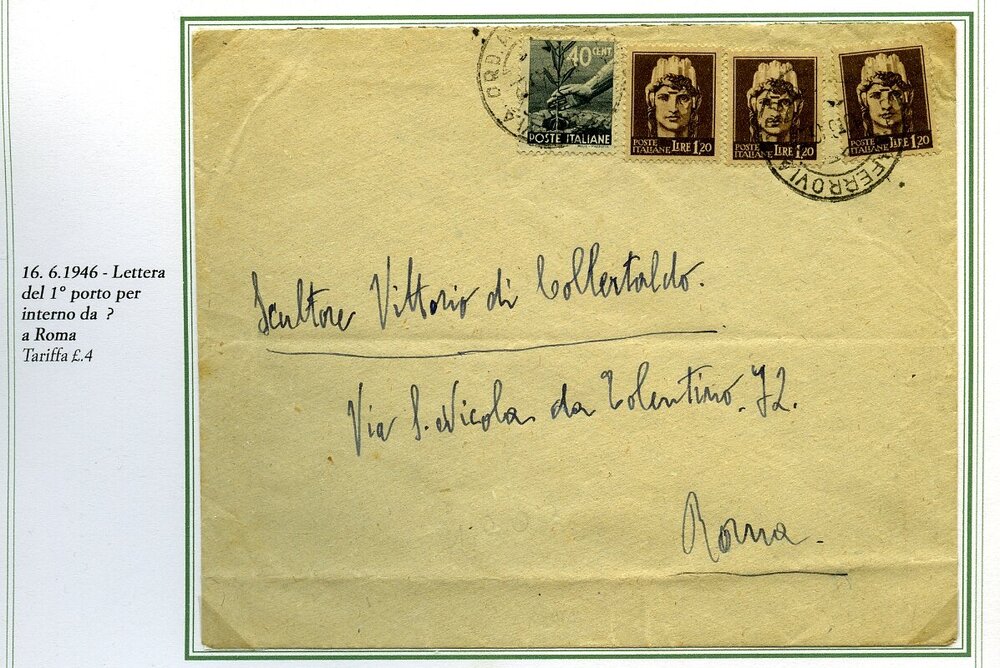 16. 6.1946 - Lettera
del 1° porto per
interno da ?
a Roma
Tariffa £.4
40 CENT
POSTE ITALIANE
POSTE
ITALIANE LIRE 1,20
POSTE
ITALIANE LIRE 1,20
POSTE
ITALIANE LIRE 1,20
ORD.A
FERROVIA
Scultore Vittorio di Collertaldo.
Via S. Nicola da Tolentino. 72.
Roma.